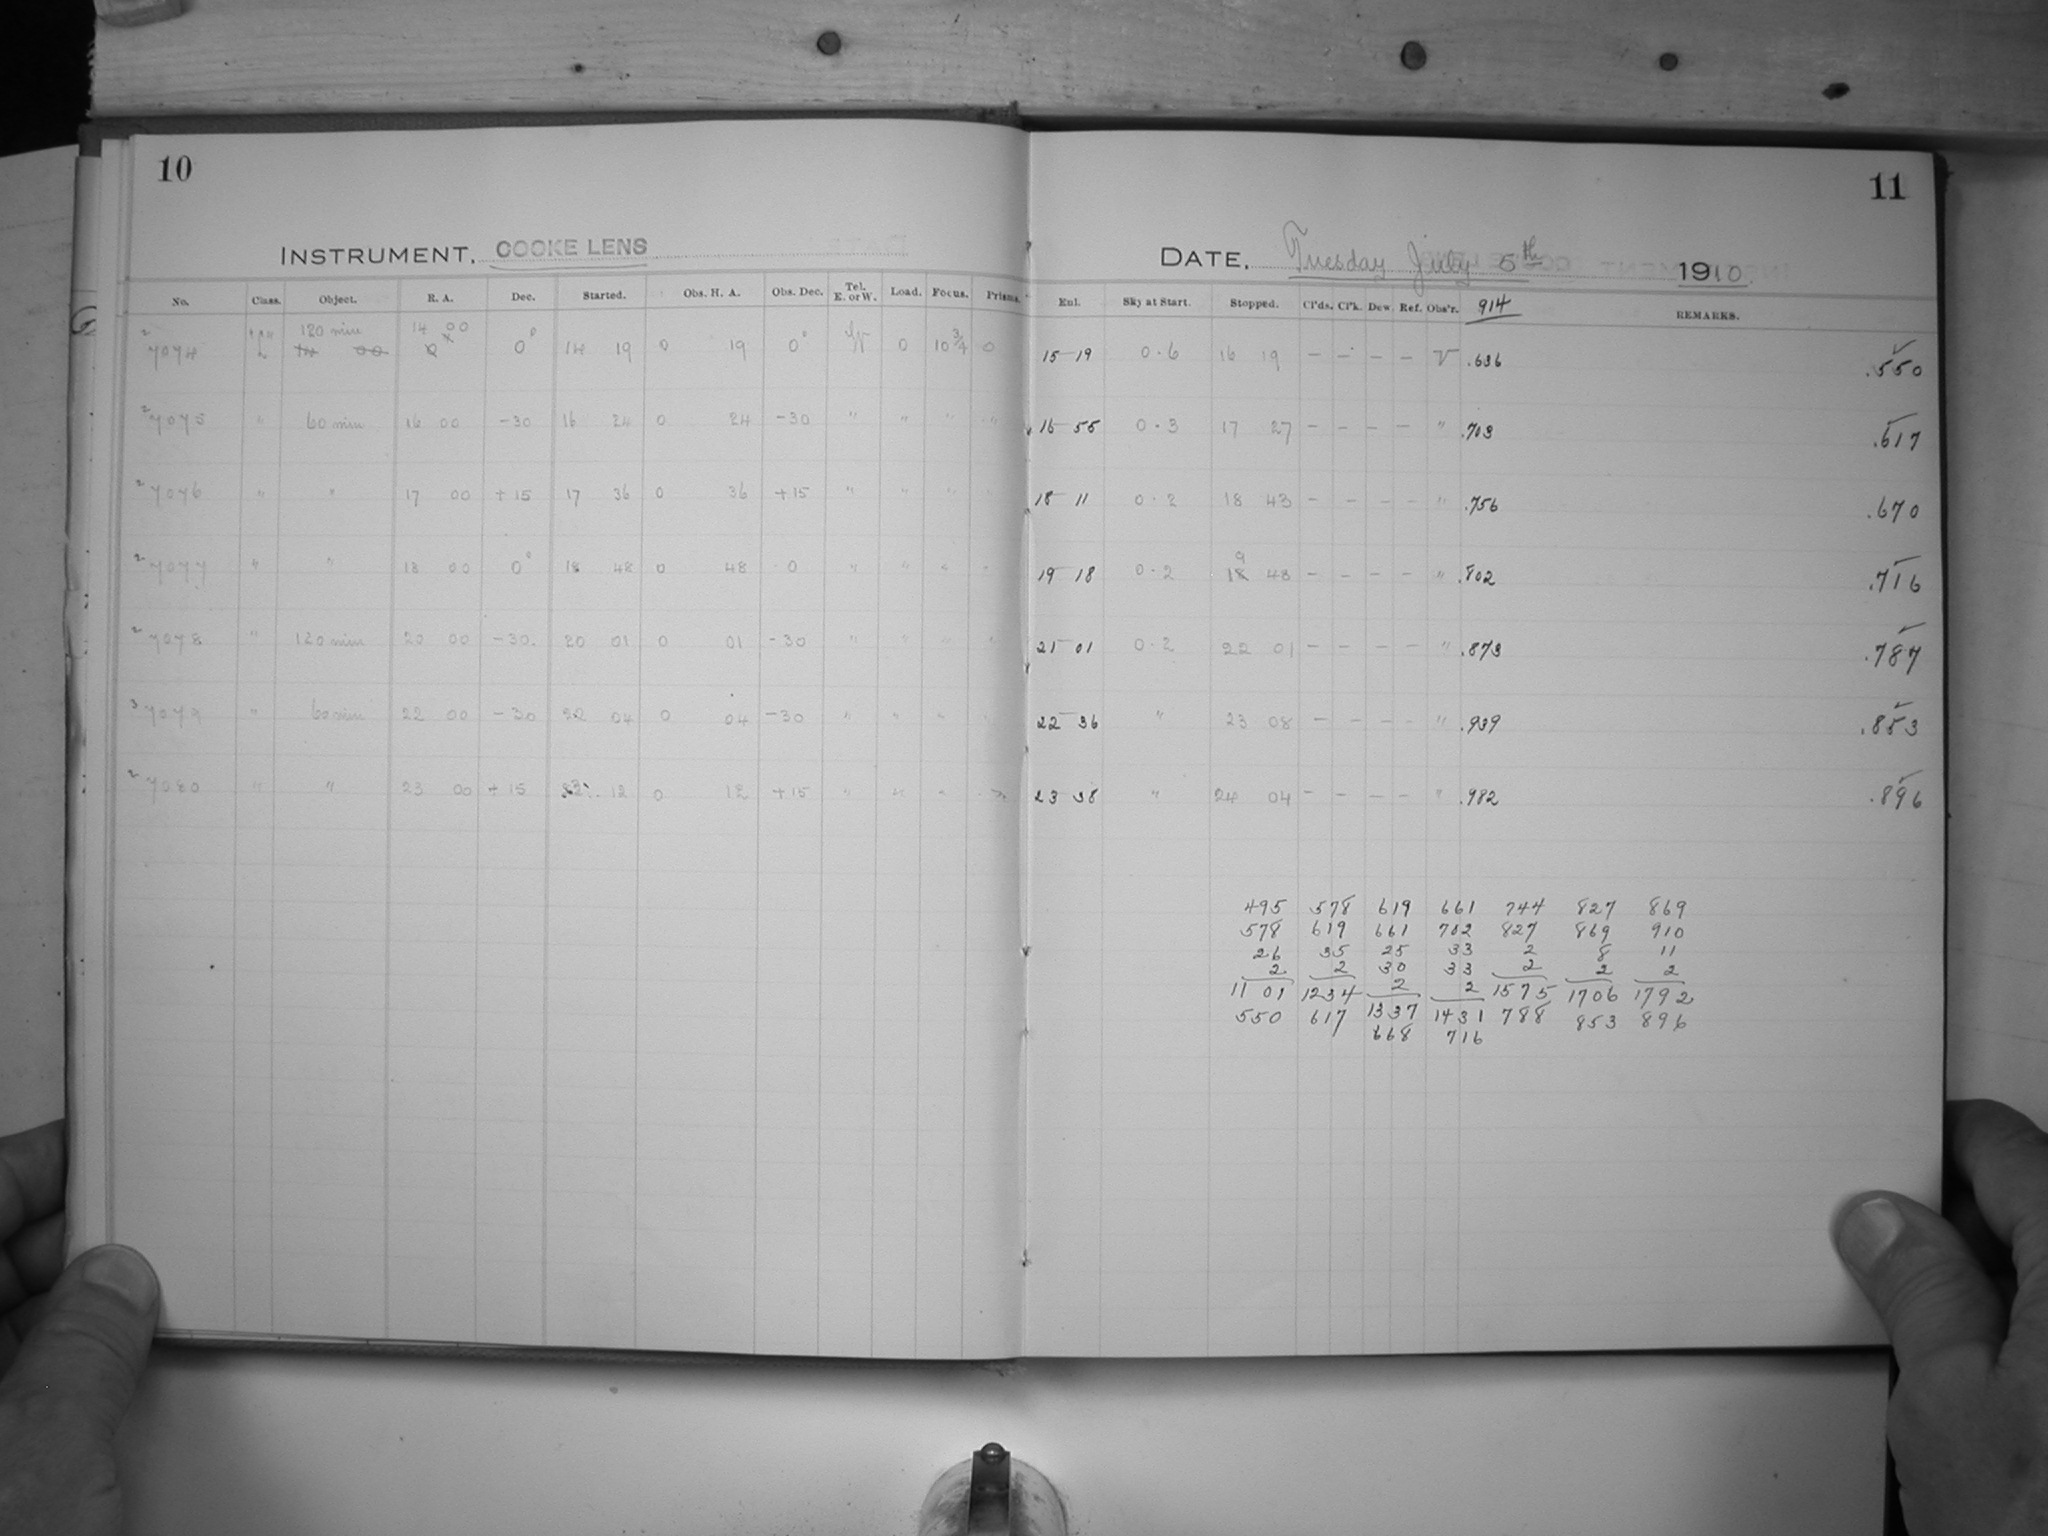 10
INSTRUMENT. COOKE LENS
No. Class. Object. R. A. Dec. Started. Obs. H. A. Obs. Dec. Tel. E. or W. Load. Focus. Prisms.
7074 L 120 min 14 00 0° 14 19 0 19 0° W 0 10 3/4 0
7075 " 60 min 16 00 -30 16 24 0 24 -30 " " " "
7076 " " 17 00 +15 17 36 0 36 +15 " " "
7077 " " 18 00 0° 18 48 0 48 0 " " "
7078 " 120 min 20 00 -30. 20 01 0 01 -30 " " " "
7079 " 60 min 22 00 -30 22 04 0 04 -30 " " "
7080 " " 23 00 +15 23 12 0 12 +15 " " "
11
DATE. Tuesday July 5th 1910.
Eul. Sky at Start. Stopped. Cl'ds. Cl'k. Dew. Ref. Obs'r. 914 REMARKS.
15 19 0.6 16 19 — — — — V .636 .550
16 55 0.3 17 27 — — — — " .703 .617
18 11 0.2 18 43 — — — — " .756 .670
19 18 0.2 19 48 — — — — " .802 .716
21 01 0.2 22 01 — — — — " .873 .787
22 36 " 23 08 — — — — " .939 .853
23 38 " 24 04 — — — — " .982 .896
495 578 619 661 744 827 869
578 619 661 702 827 869 910
26 35 25 33 2 8 11
2 2 30 33 2 2 2
1101 1234 2 2 1575 1706 1792
550 617 1337 1431 788 853 896
668 716